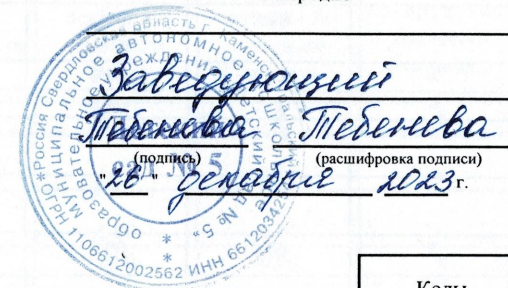 Заведующий
Тебенева Тебенева
(подпись) (расшифровка подписи)
"26" декабря 2023 г.
Россия Свердловская область г. Каменск
Муниципальное автономное дошкольное
образовательное учреждение
ОГРН 1106612002562 ИНН 661203423